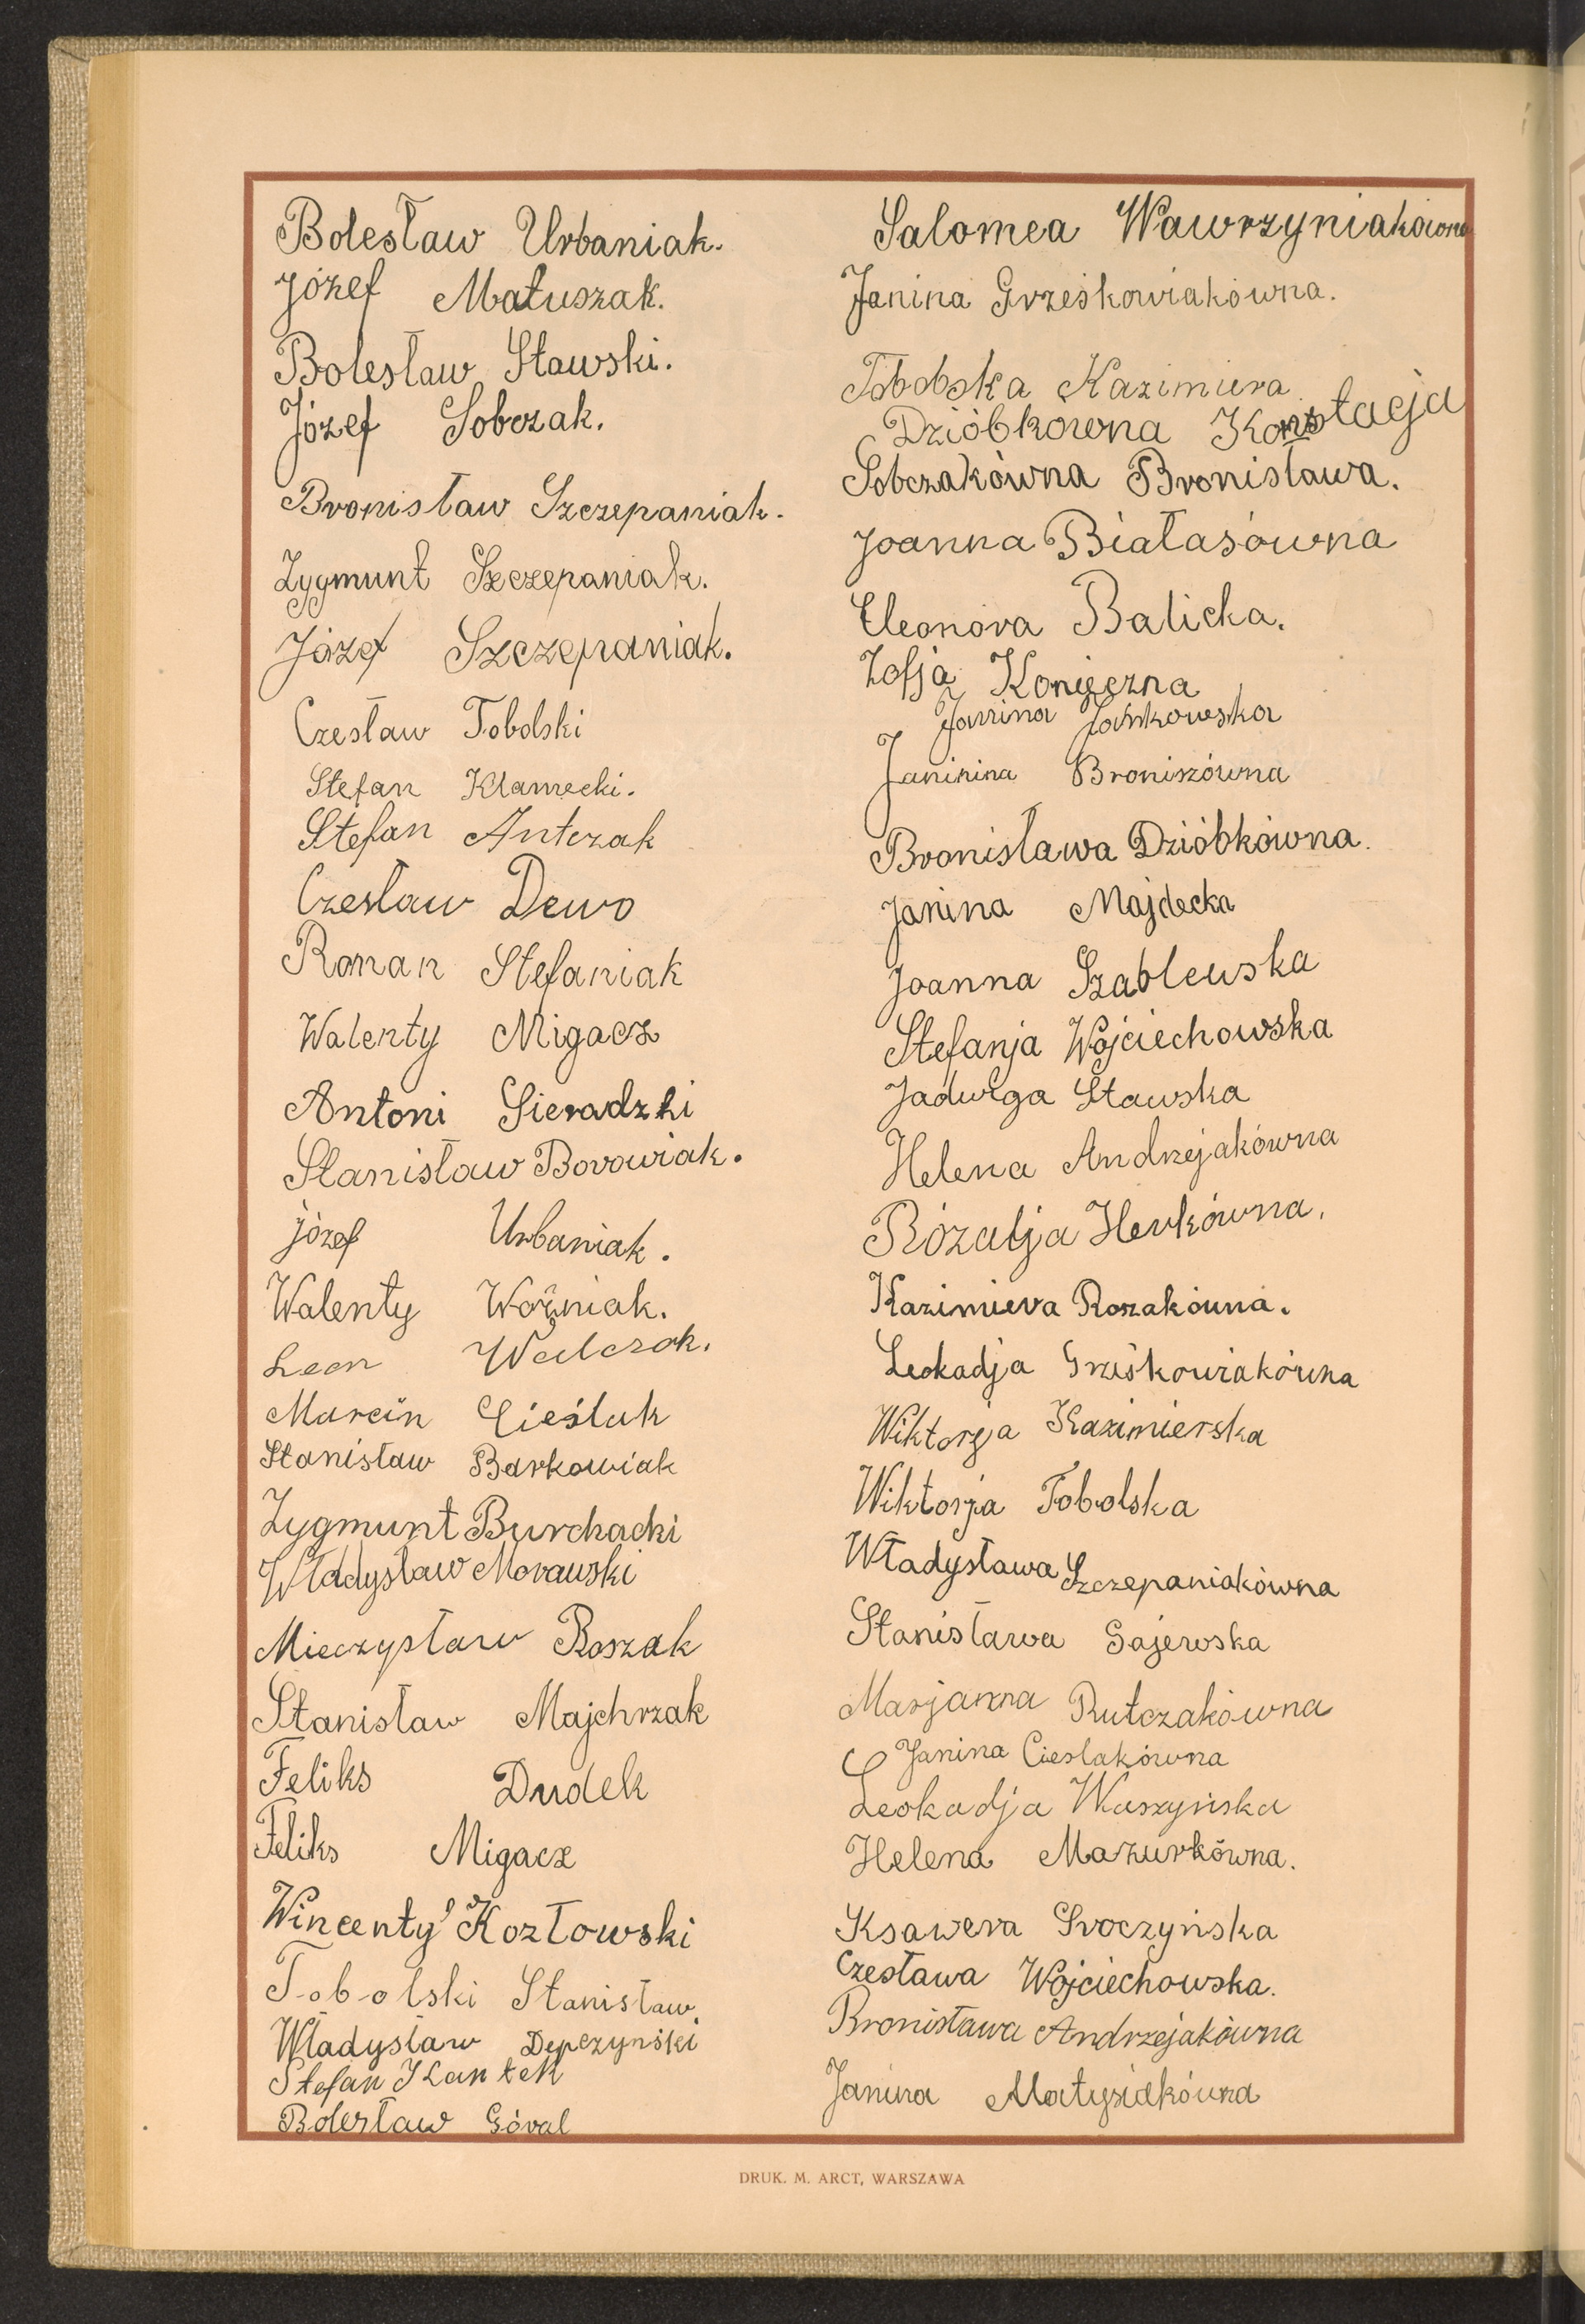 Bolesław Urbaniak.
Józef Matuszak.
Bolesław Sławski.
Józef Sobczak.
Bronisław Szczepaniak.
Zygmunt Szczepaniak.
Józef Szczepaniak.
Czesław Tobolski
Stefan Klamecki.
Stefan Antczak
Czesław Dewo
Roman Stefaniak
Walenty Migacz
Antoni Sieradzki
Stanisław Borowiak.
józef Urbaniak.
Walenty Woźniak.
Leon Walczak.
Marcin Cieślak
Stanisław Barkowiak
Zygmunt Burchacki
Władysław Morawski
Mieczysław Roszak
Stanisław Majchrzak
Feliks Dudek
Feliks Migacz
Wincenty Kozłowski
Tobolski Stanisław
Władysław Depczyński
Stefan Kantek
Bolesław Góral
Salomea Wawrzyniakówna
Janina Grześkowiakówna.
Tobolska Kazimiera
Dzióbkówna Konstacja
Sobczakówna Bronisława.
Joanna Białasówna
Eleonora Balicka.
Zofja Konieczna
Janina Jankowska
Janinina Broniszówna
Bronisława Dzióbkówna.
Janina Majdecka
Joanna Szablewska
Stefanja Wojciechowska
Jadwiga Sławska
Helena Andrzejakówna
Rózalja Herkówna.
Kazimiera Roszakówna.
Leokadja Grześkowiakówna
Wiktorja Kazimierska
Wiktorja Tobolska
Władysława Szczepaniakówna
Stanisława Gajewska
Marjanna Rutczakówna
Janina Cieslakówna
Leokadja Waszyńska
Helena Mazurkówna.
Ksawera Groczyńska
Czesława Wojciechowska.
Bronisława Andrzejakówna
Janina Matysiakówna
DRUK. M. ARCT, WARSZAWA